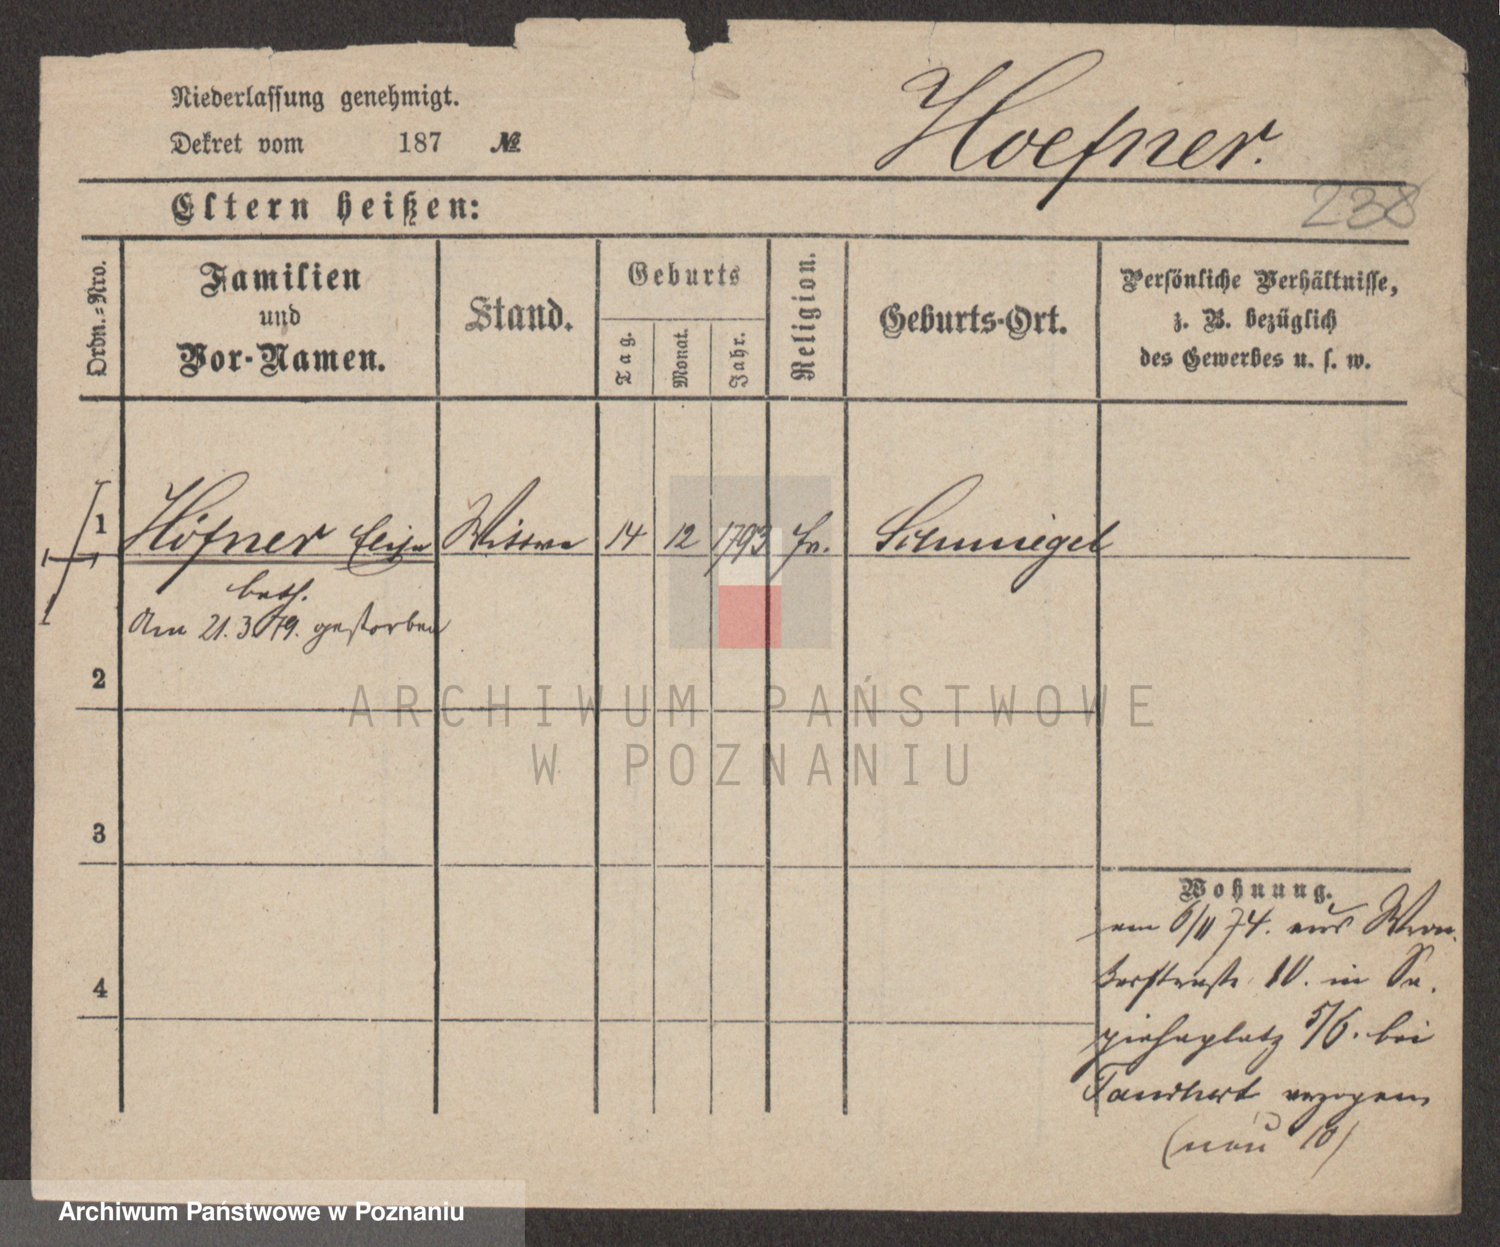 Niederlassung genehmigt.
Dekret vom 187 №
Hoefner.
238
Eltern heißen:
Ordn.-Nro.
Familien
und
Vor-Namen.
Stand.
Geburts
Tag.
Monat.
Jahr.
Religion.
Geburts-Ort.
Persönliche Verhältnisse,
z. B. bezüglich
des Gewerbes u. s. w.
1 Höfner Elisa Wittwe 14 12 1793 Schmiegel
beth.
Am 21.3.79. gestorben
2
3
4
Wohnung.
am 6/11 74. aus Wron
kerstraße 10. in Sa.
piehaplatz 5/6. bei
verzogen
(neu 10)
ARCHIWUM PAŃSTWOWE
W POZNANIU
Archiwum Państwowe w Poznaniu